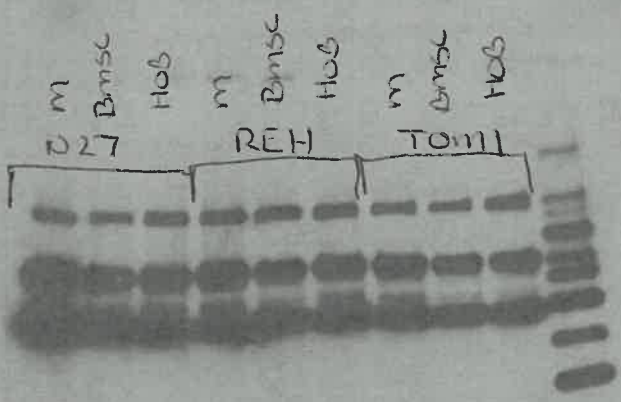 M BMSC HOB M BMSC HOB M BMSC HOB
N27 REH TOM1